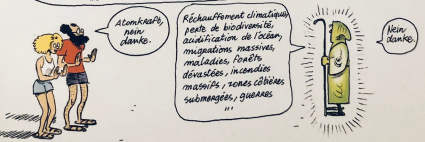 Atomkraft,
nein
danke.
Réchauffement climatique,
perte de biodiversité,
acidification de l'océan,
migrations massives,
maladies, forêts
dévastées, incendies
massifs, zones côtières
submergées, guerres
...
Nein
danke.